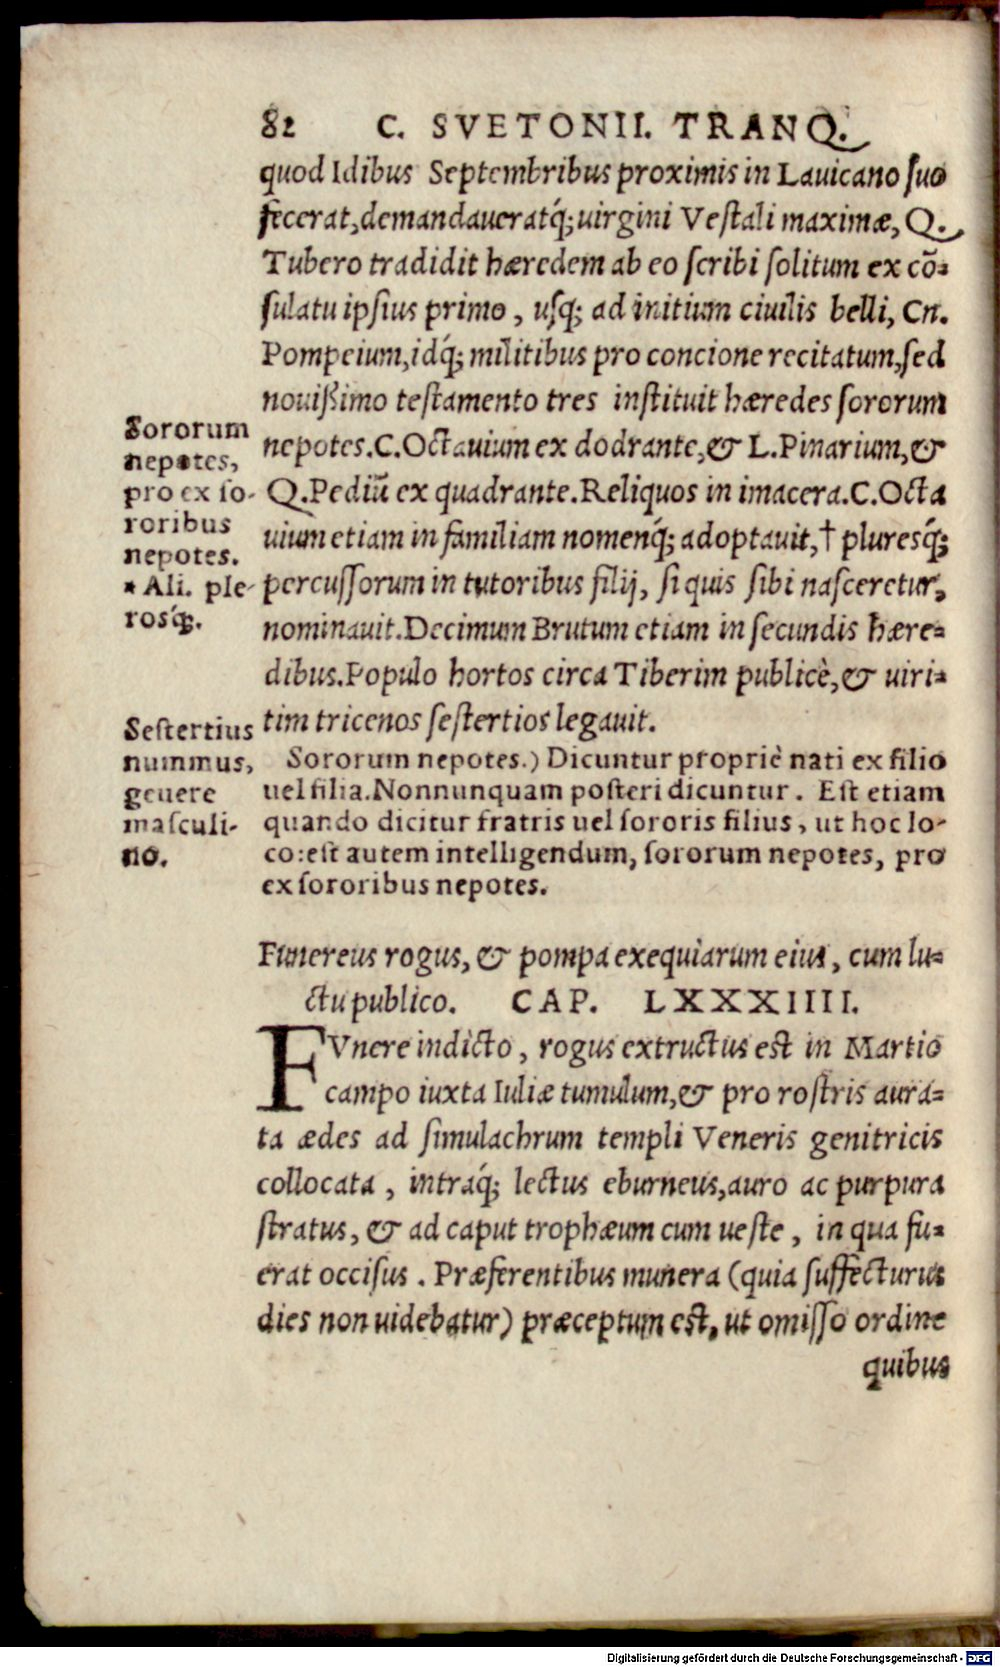 82 C. SVETONII. TRANQ.
quod Idibus Septembribus proximis in Lauicano ſuo
fecerat, demandaueratq́; uirgini Veſtali maximæ, Q.
Tubero tradidit hæredem ab eo ſcribi ſolitum ex cō-
ſulatu ipſius primo, uſq; ad initium ciuilis belli, Cn.
Pompeium, idq́; militibus pro concione recitatum, ſed
nouißimo teſtamento tres inſtituit hæredes ſororum
nepotes. C. Octauium ex dodrante, & L. Pinarium, &
Q. Pediū ex quadrante. Reliquos in imacera. C. Octa
uium etiam in familiam nomenq́; adoptauit, † pluresq́;
percuſſorum in tutoribus filij, ſi quis ſibi naſceretur,
nominauit. Decimum Brutum etiam in ſecundis hære-
dibus. Populo hortos circa Tiberim publicè, & uiri-
tim tricenos ſeſtertios legauit.
Sororum
nepotes,
pro ex ſo-
roribus
nepotes.
* Ali. ple-
rosq́;.
Seſtertius
nummus,
genere
maſculi-
no.
Sororum nepotes.) Dicuntur propriè nati ex filio
uel filia. Nonnunquam poſteri dicuntur. Eſt etiam
quando dicitur fratris uel ſororis filius, ut hoc lo-
co: eſt autem intelligendum, ſororum nepotes, pro
ex ſororibus nepotes.
Funereus rogus, & pompa exequiarum eius, cum lu-
ctu publico. CAP. LXXXIIII.
FVnere indicto, rogus extructus eſt in Martio
campo iuxta Iuliæ tumulum, & pro roſtris aura-
ta ædes ad ſimulachrum templi Veneris genitricis
collocata, intraq́; lectus eburneus, auro ac purpura
ſtratus, & ad caput trophæum cum ueſte, in qua fu-
erat occiſus. Præferentibus munera (quia ſuffecturus
dies non uidebatur) præceptum eſt, ut omiſſo ordine
quibus
Digitalisierung gefördert durch die Deutsche Forschungsgemeinschaft - DFG